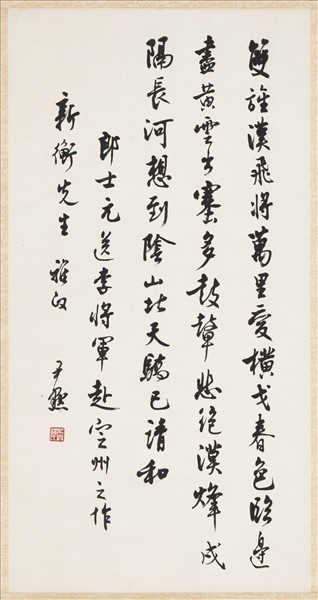 雙旌漢飛將萬里愛橫戈春色臨邊
盡黃雲出塞多鼓鼙悲絕漠烽戍
隔長河想到陰山北天驕已請和
郎士元送李將軍赴定州之作
新衡先生雅政 尹默